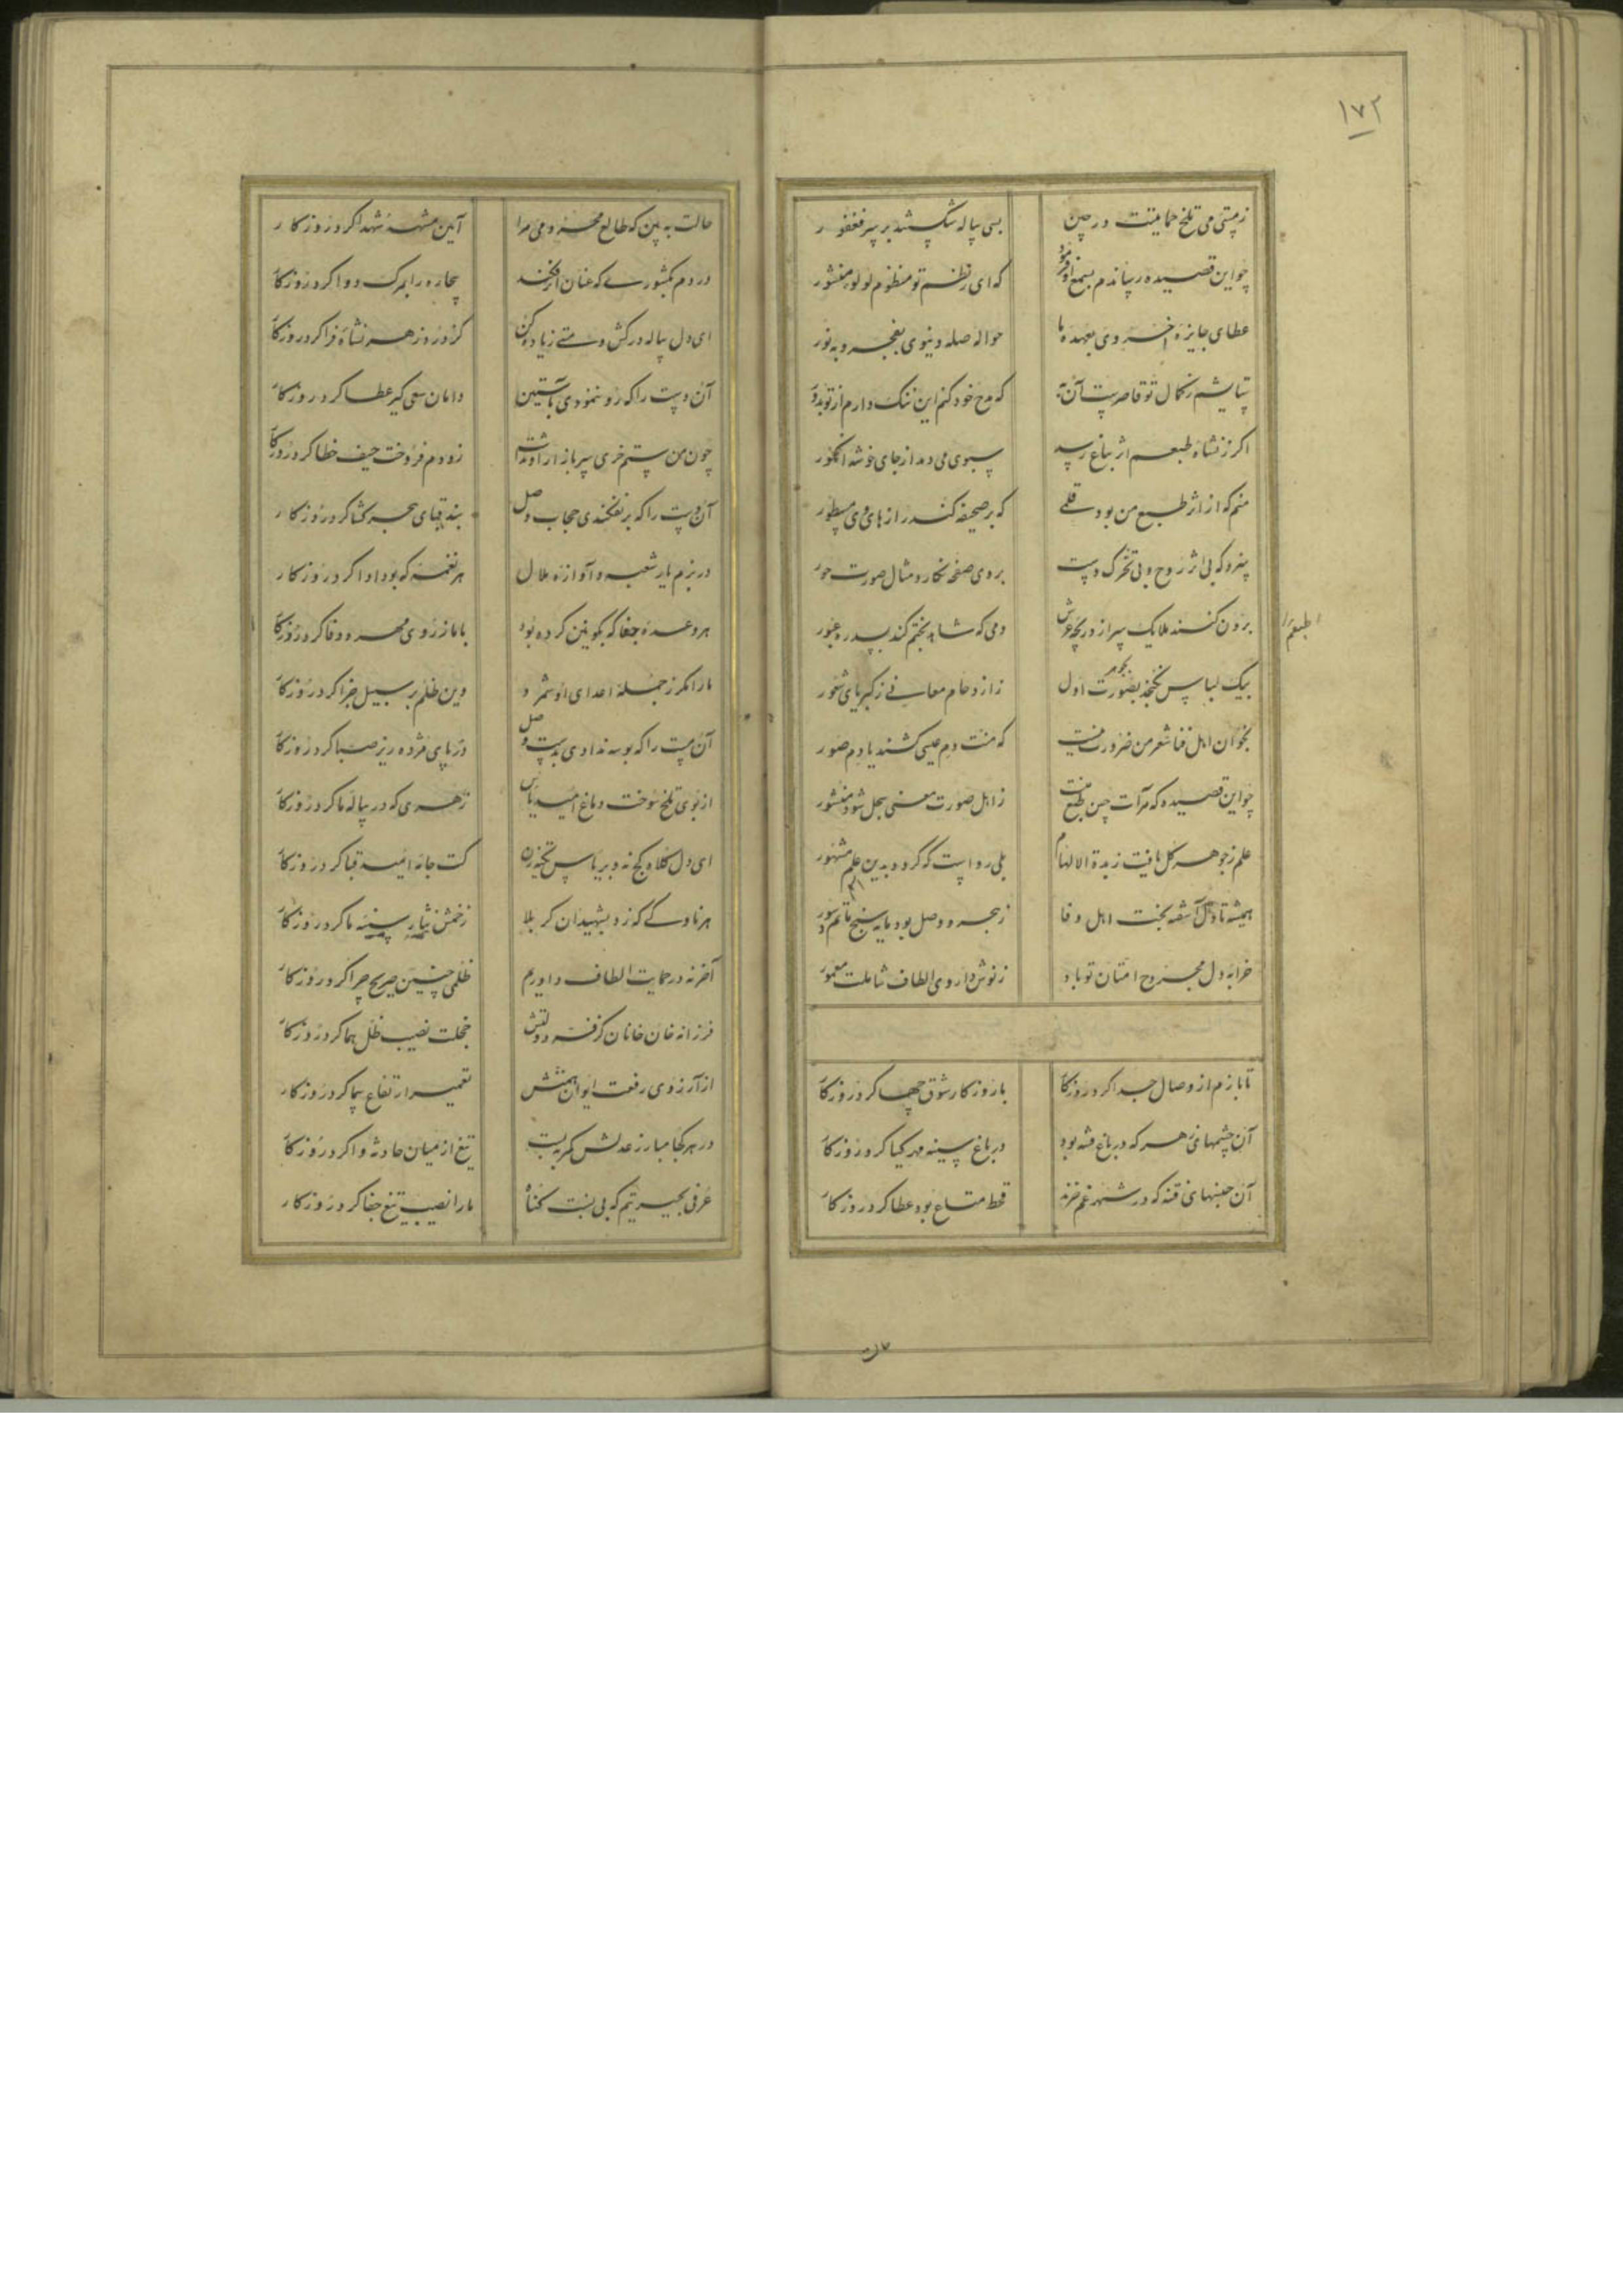 ۱۷۲
ز مستی می تلخ حمایتت در چین
بسی پیاله شکستند بر سر فغفور
چو این قصیده رساندم بسمع او فرمود
که ای ز نظم تو منظوم لولو منثور
عطای جایزه اخروی بعهده ما
حواله صله دنیوی بفجر و به نور
ستایشم ز کمال تو قاصرست آن به
که مدح خود کنم این ننگ دارم از تو بدور
اگر ز نشاه طبعم اثر بباغ رسد
سبوی می دمد از جای خوشه انگور
منم که از اثر طبع من بود قلمی
که بر صحیفه کند رازهای وی مسطور
بروی صفحه نگارد مثال صورت حور
برون کنند ملایک سر از دریچه عرش
دمی که شاهد بختم کند بسدره عبور
طبعم
بیک لباس نگنجد بصورت اول
ز ازدحام معانی ز کبریای شعور
بخوان اهل فنا شعر من ضرورت نیست
که منت دم عیسی کشند یا دم صور
چو این قصیده که مرآت چین طبع منست
ز اهل صورت معنی بحل شود منشور
علم ز جوهر کل یافت زبدة الالهام
بلی رواست که گردد بدین علم مشهور
همیشه تا دل آشفته بخت اهل وفا
ز هجر و وصل بود مایه سنج ماتم و سور
خرابه دل مجروح امتنان تو باد
ز نوش داروی الطاف شاملت معمور
تا بازم از وصال جدا کرد روزگار
با روزگار شوق چها کرد روزگار
آن چشمهای زهر که در باغ فتنه بود
در باغ سینه مهر گیا کرد روزگار
آن جنسهای فتنه که در شهر غم خرند
قحط متاع بود عطا کرد روزگار
حالت به بین که طالع محرومی مرا
آیین مشهد شهدا کرد روزگار
دردم بکشوری که عنان افکند
بیچاره را بمرگ دوا کرد روزگار
ای دل پیاله درکش و مستی زیاده کن
کز درد زهر نشاه فزا کرد روزگار
آن دست را که رو ننمودی بآستین
دامان سعی گیر عطا کرد روزگار
چون من ستم خری سر بازار او نداشت
زودم فروخت حیف خطا کرد روزگار
آن دست را که برنفکندی حجاب وصل
بند قبای هجر گشا کرد روزگار
در بزم ما بر شعبه و آوازه ملال
هر نغمه که بود ادا کرد روزگار
هر وعده جفا که بکونین کرده بود
با ما ز روی مهر و وفا کرد روزگار
ما را مگر ز جمله اعدای او شمرد
وین ظلم بر سبیل جزا کرد روزگار
آن دست را که بوسه ندادی بدست وصل
در پای مژده ریز صبا کرد روزگار
از بوی تلخ سوخت دماغ امید و یاس
زهری که در پیاله ما کرد روزگار
ای دل کلاه کج نه و بر یاس تکیه زن
کت جامه امید قبا کرد روزگار
هر ناوکی که زد بشهیدان کربلا
زخمش نثار سینه ما کرد روزگار
آخر نه در حمایت الطاف داورم
ظلمی چنین صریح چرا کرد روزگار
فرزانه خان خانان کز فر دولتش
خجلت نصیب ظل هما کرد روزگار
از آرزوی رفعت ایوان همتش
تعمیر ارتفاع سما کرد روزگار
در هر کجا مبارز عدلش کمر ببست
تیغ از میان حادثه وا کرد روزگار
عرفی بحیرتیم که بی نسبت گناه
ما را نصیب تیغ جفا کرد روزگار